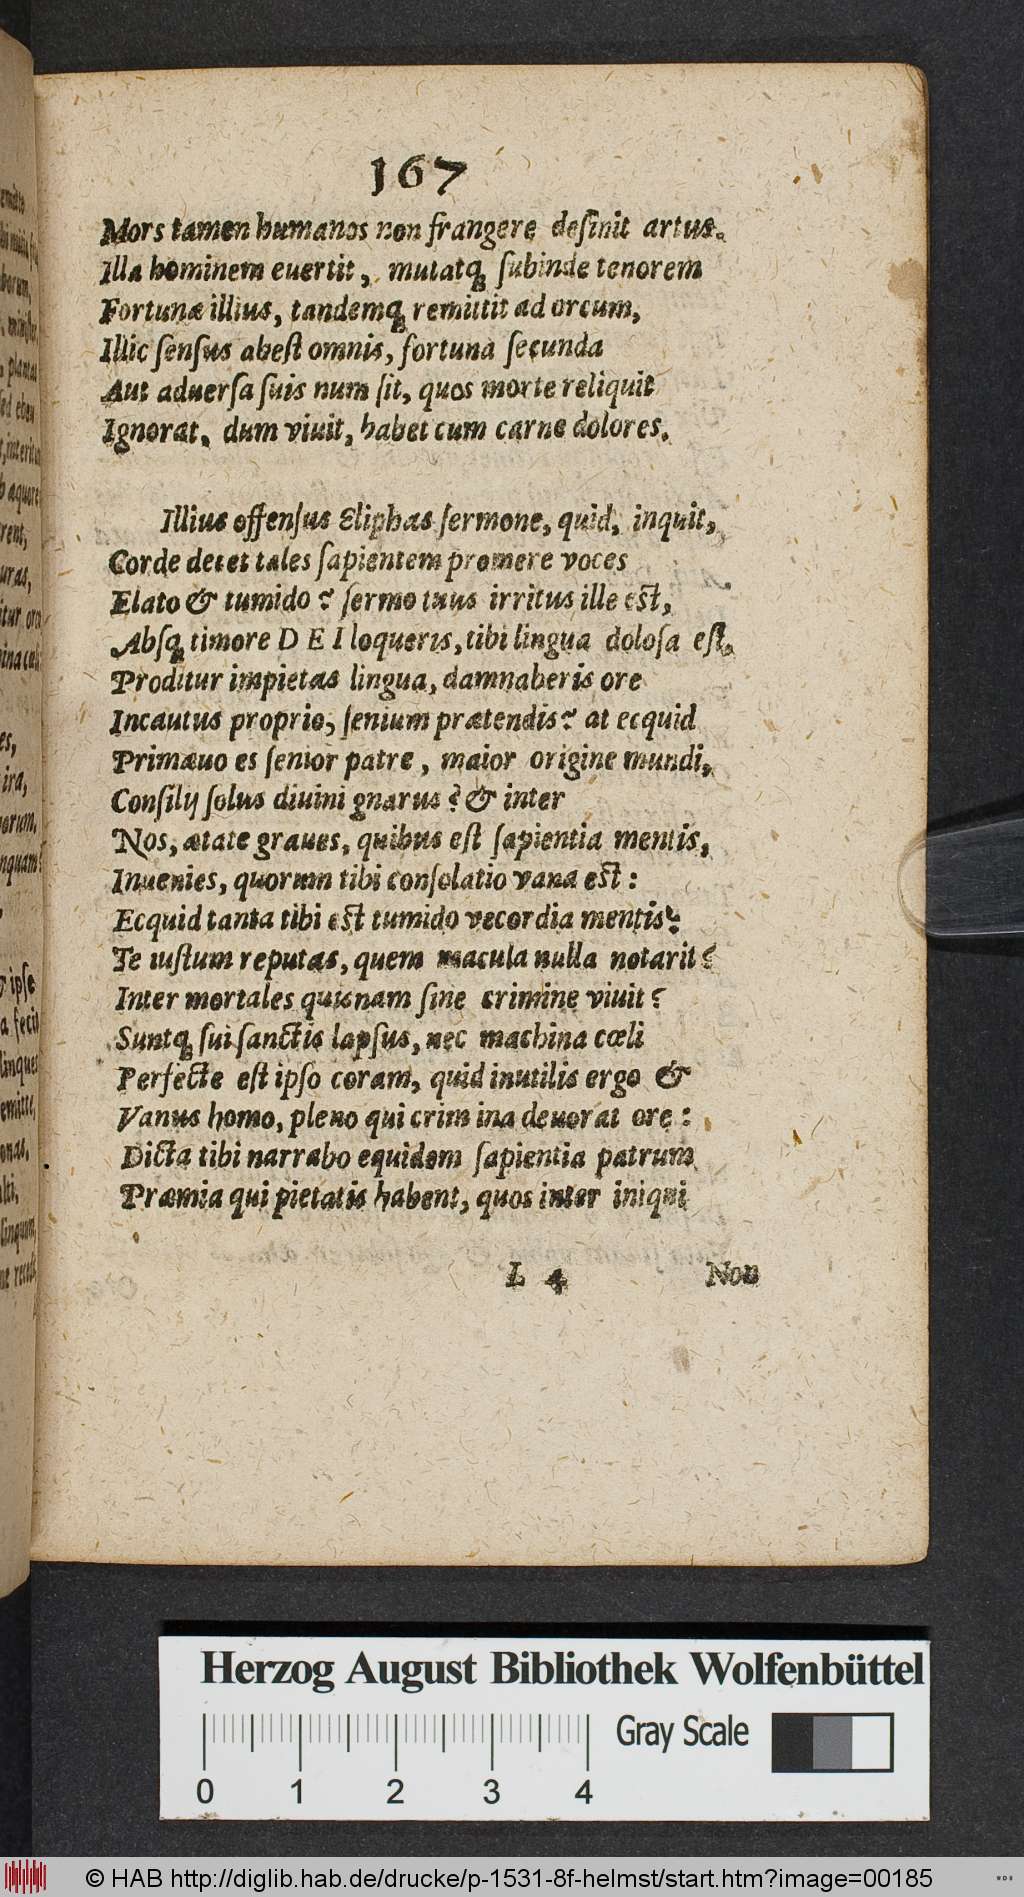 167
Mors tamen humanos non frangere deſinit artus.
Illa hominem euertit, mutatq́; ſubinde tenorem
Fortunæ illius, tandemq́; remittit ad orcum,
Illic ſenſus abeſt omnis, fortuna ſecunda
Aut aduerſa ſuis num ſit, quos morte reliquit
Ignorat, dum viuit, habet cum carne dolores.
Illius offenſus Eliphas ſermone, quid, inquit,
Corde decet tales ſapientem promere voces
Elato & tumido? ſermo tuus irritus ille eſt,
Abſq; timore DEI loqueris, tibi lingua doloſa eſt.
Proditur impietas lingua, damnaberis ore
Incautus proprio, ſenium prætendis? at ecquid
Primæuo es ſenior patre, maior origine mundi,
Conſilij ſolus diuini gnarus? & inter
Nos, ætate graues, quibus eſt ſapientia mentis,
Inuenies, quorum tibi conſolatio vana eſt:
Ecquid tanta tibi eſt tumido vecordia mentis?
Te iuſtum reputas, quem macula nulla notarit?
Inter mortales quiſnam ſine crimine viuit?
Suntq; ſui ſanctis lapſus, nec machina cœli
Perfecte eſt ipſo coram, quid inutilis ergo &
Vanus homo, pleno qui crimina deuorat ore:
Dicta tibi narrabo equidem ſapientia patrum
Præmia qui pietatis habent, quos inter iniqui
L 4 Non
Herzog August Bibliothek Wolfenbüttel
Gray Scale
0 1 2 3 4
© HAB http://diglib.hab.de/drucke/p-1531-8f-helmst/start.htm?image=00185